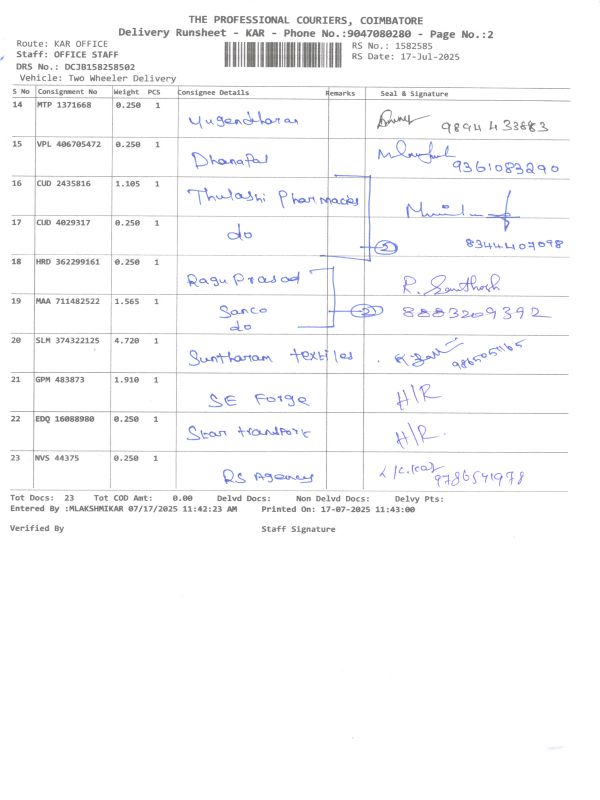 THE PROFESSIONAL COURIERS, COIMBATORE
Delivery Runsheet - KAR - Phone No.:9047080280 - Page No.:2
Route: KAR OFFICE RS No.: 1582585
Staff: OFFICE STAFF RS Date: 17-Jul-2025
DRS No.: DCJB158258502
Vehicle: Two Wheeler Delivery
S No Consignment No Weight PCS Consignee Details Remarks Seal & Signature
14 MTP 1371668 0.250 1 Yugendharan 9894433683
15 VPL 406705472 0.250 1 Dhanapal 9361083290
16 CUD 2435816 1.105 1 Thulashi Pharmacies
17 CUD 4029317 0.250 1 do 2 8344407098
18 HRD 362299161 0.250 1 Ragu Prasad R. Santhosh
19 MAA 711482522 1.565 1 Sanco 2 8883209392
do
20 SLM 374322125 4.720 1 Suntharam textiles
21 GPM 483873 1.910 1 SE Forge H/R
22 EDQ 16088980 0.250 1 Star transport H/R.
23 NVS 44375 0.250 1 RS Agency 9786541978
Tot Docs: 23 Tot COD Amt: 0.00 Delvd Docs: Non Delvd Docs: Delvy Pts:
Entered By :MLAKSHMIKAR 07/17/2025 11:42:23 AM Printed On: 17-07-2025 11:43:00
Verified By Staff Signature